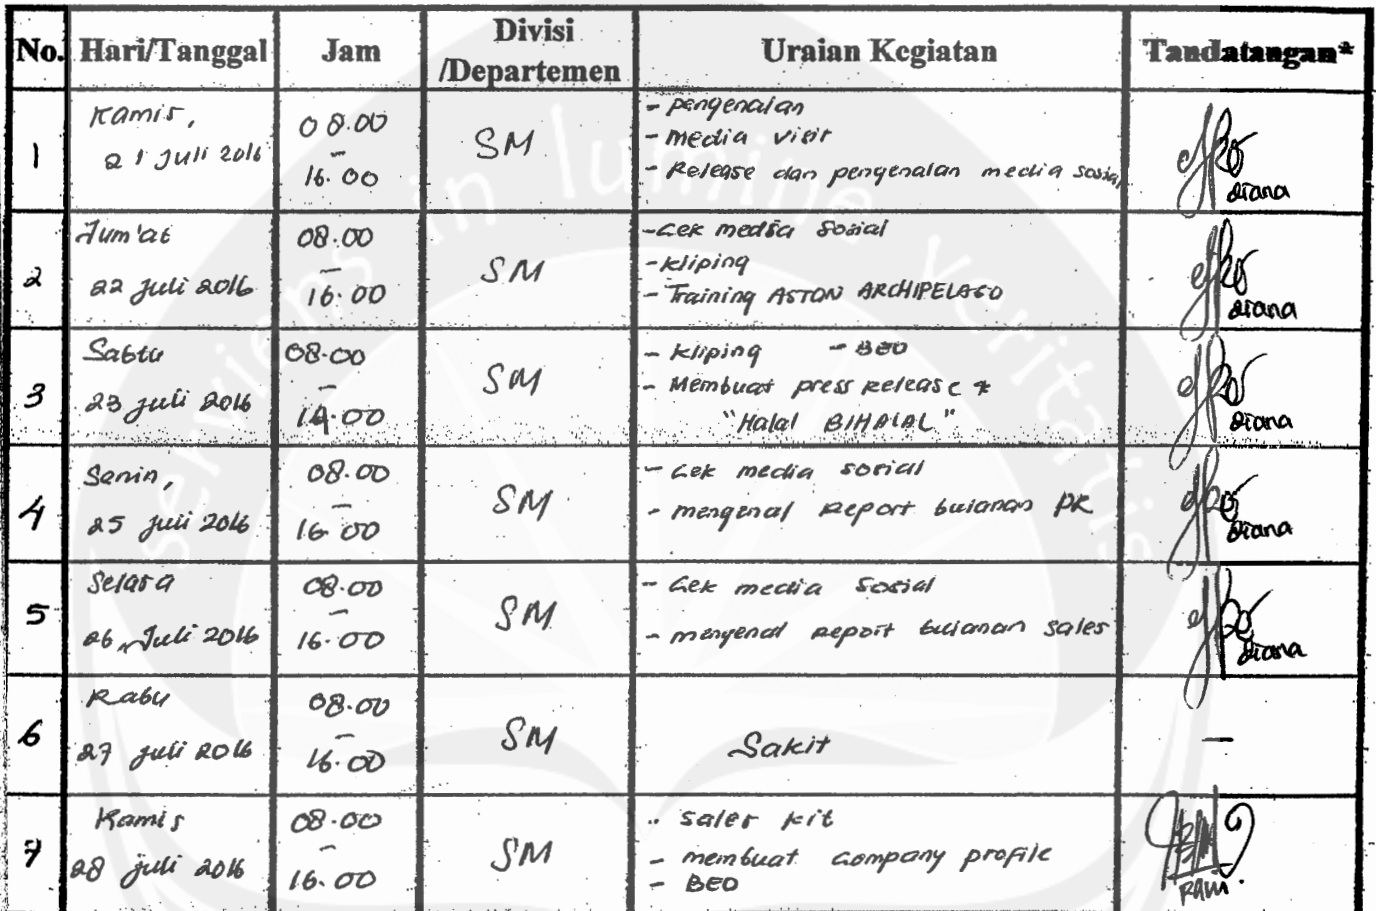 No. Hari/Tanggal Jam Divisi /Departemen Uraian Kegiatan Tandatangan*
1 Kamis, 21 Juli 2016 08.00 – 16.00 SM
- pengenalan
- media visit
- Release dan pengenalan media sosial
diana
2 Jum'at 22 juli 2016 08.00 – 16.00 SM
- cek media sosial
- kliping
- Training ASTON ARCHIPELAGO
diana
3 Sabtu 23 juli 2016 08.00 – 14.00 SM
- kliping - BEO
- Membuat press release *
"Halal BIHALAL"
diana
4 Senin, 25 juli 2016 08.00 – 16.00 SM
- cek media sosial
- mengenal report bulanan PR
diana
5 Selasa 26, Juli 2016 08.00 – 16.00 SM
- cek media sosial
- mengenal report bulanan sales
diana
6 Rabu 27 juli 2016 08.00 – 16.00 SM
Sakit
—
7 Kamis 28 juli 2016 08.00 – 16.00 SM
- sales kit
- membuat company profile
- BEO
serviens in lumine veritatis